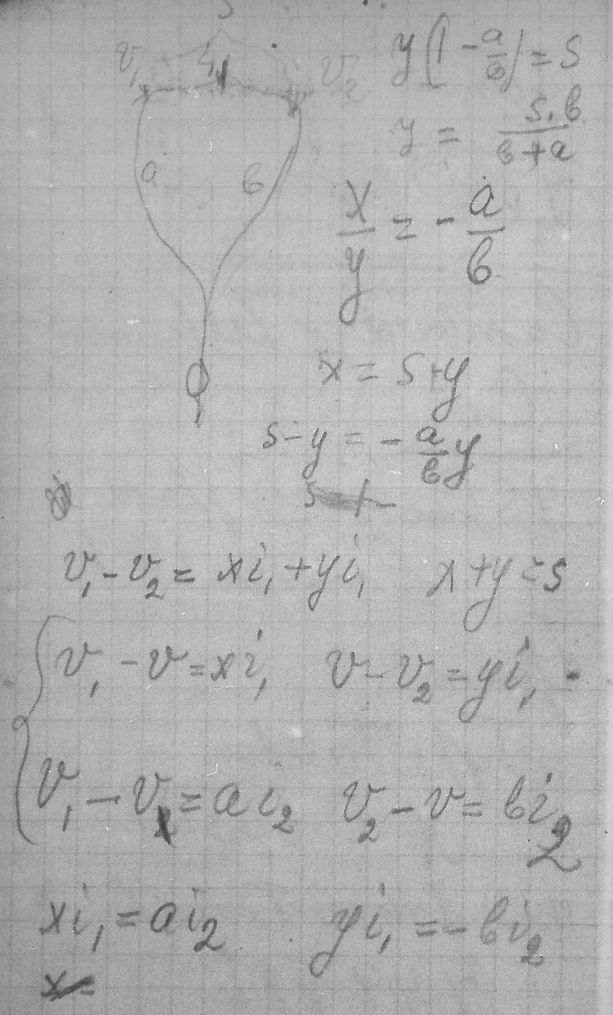 v₁ v₂
a b
y(1 - a/b) = s
y = s.b/(b+a)
x/y = - a/b
x = s+y
s-y = - a/b y
v₁ - v₂ = xi₁ + yi₁ x+y = s
v₁ - v = xi₁ v - v₂ = yi₁
v₁ - v = ai₂ v₂ - v = bi₂
xi₁ = ai₂ yi₁ = -bi₂